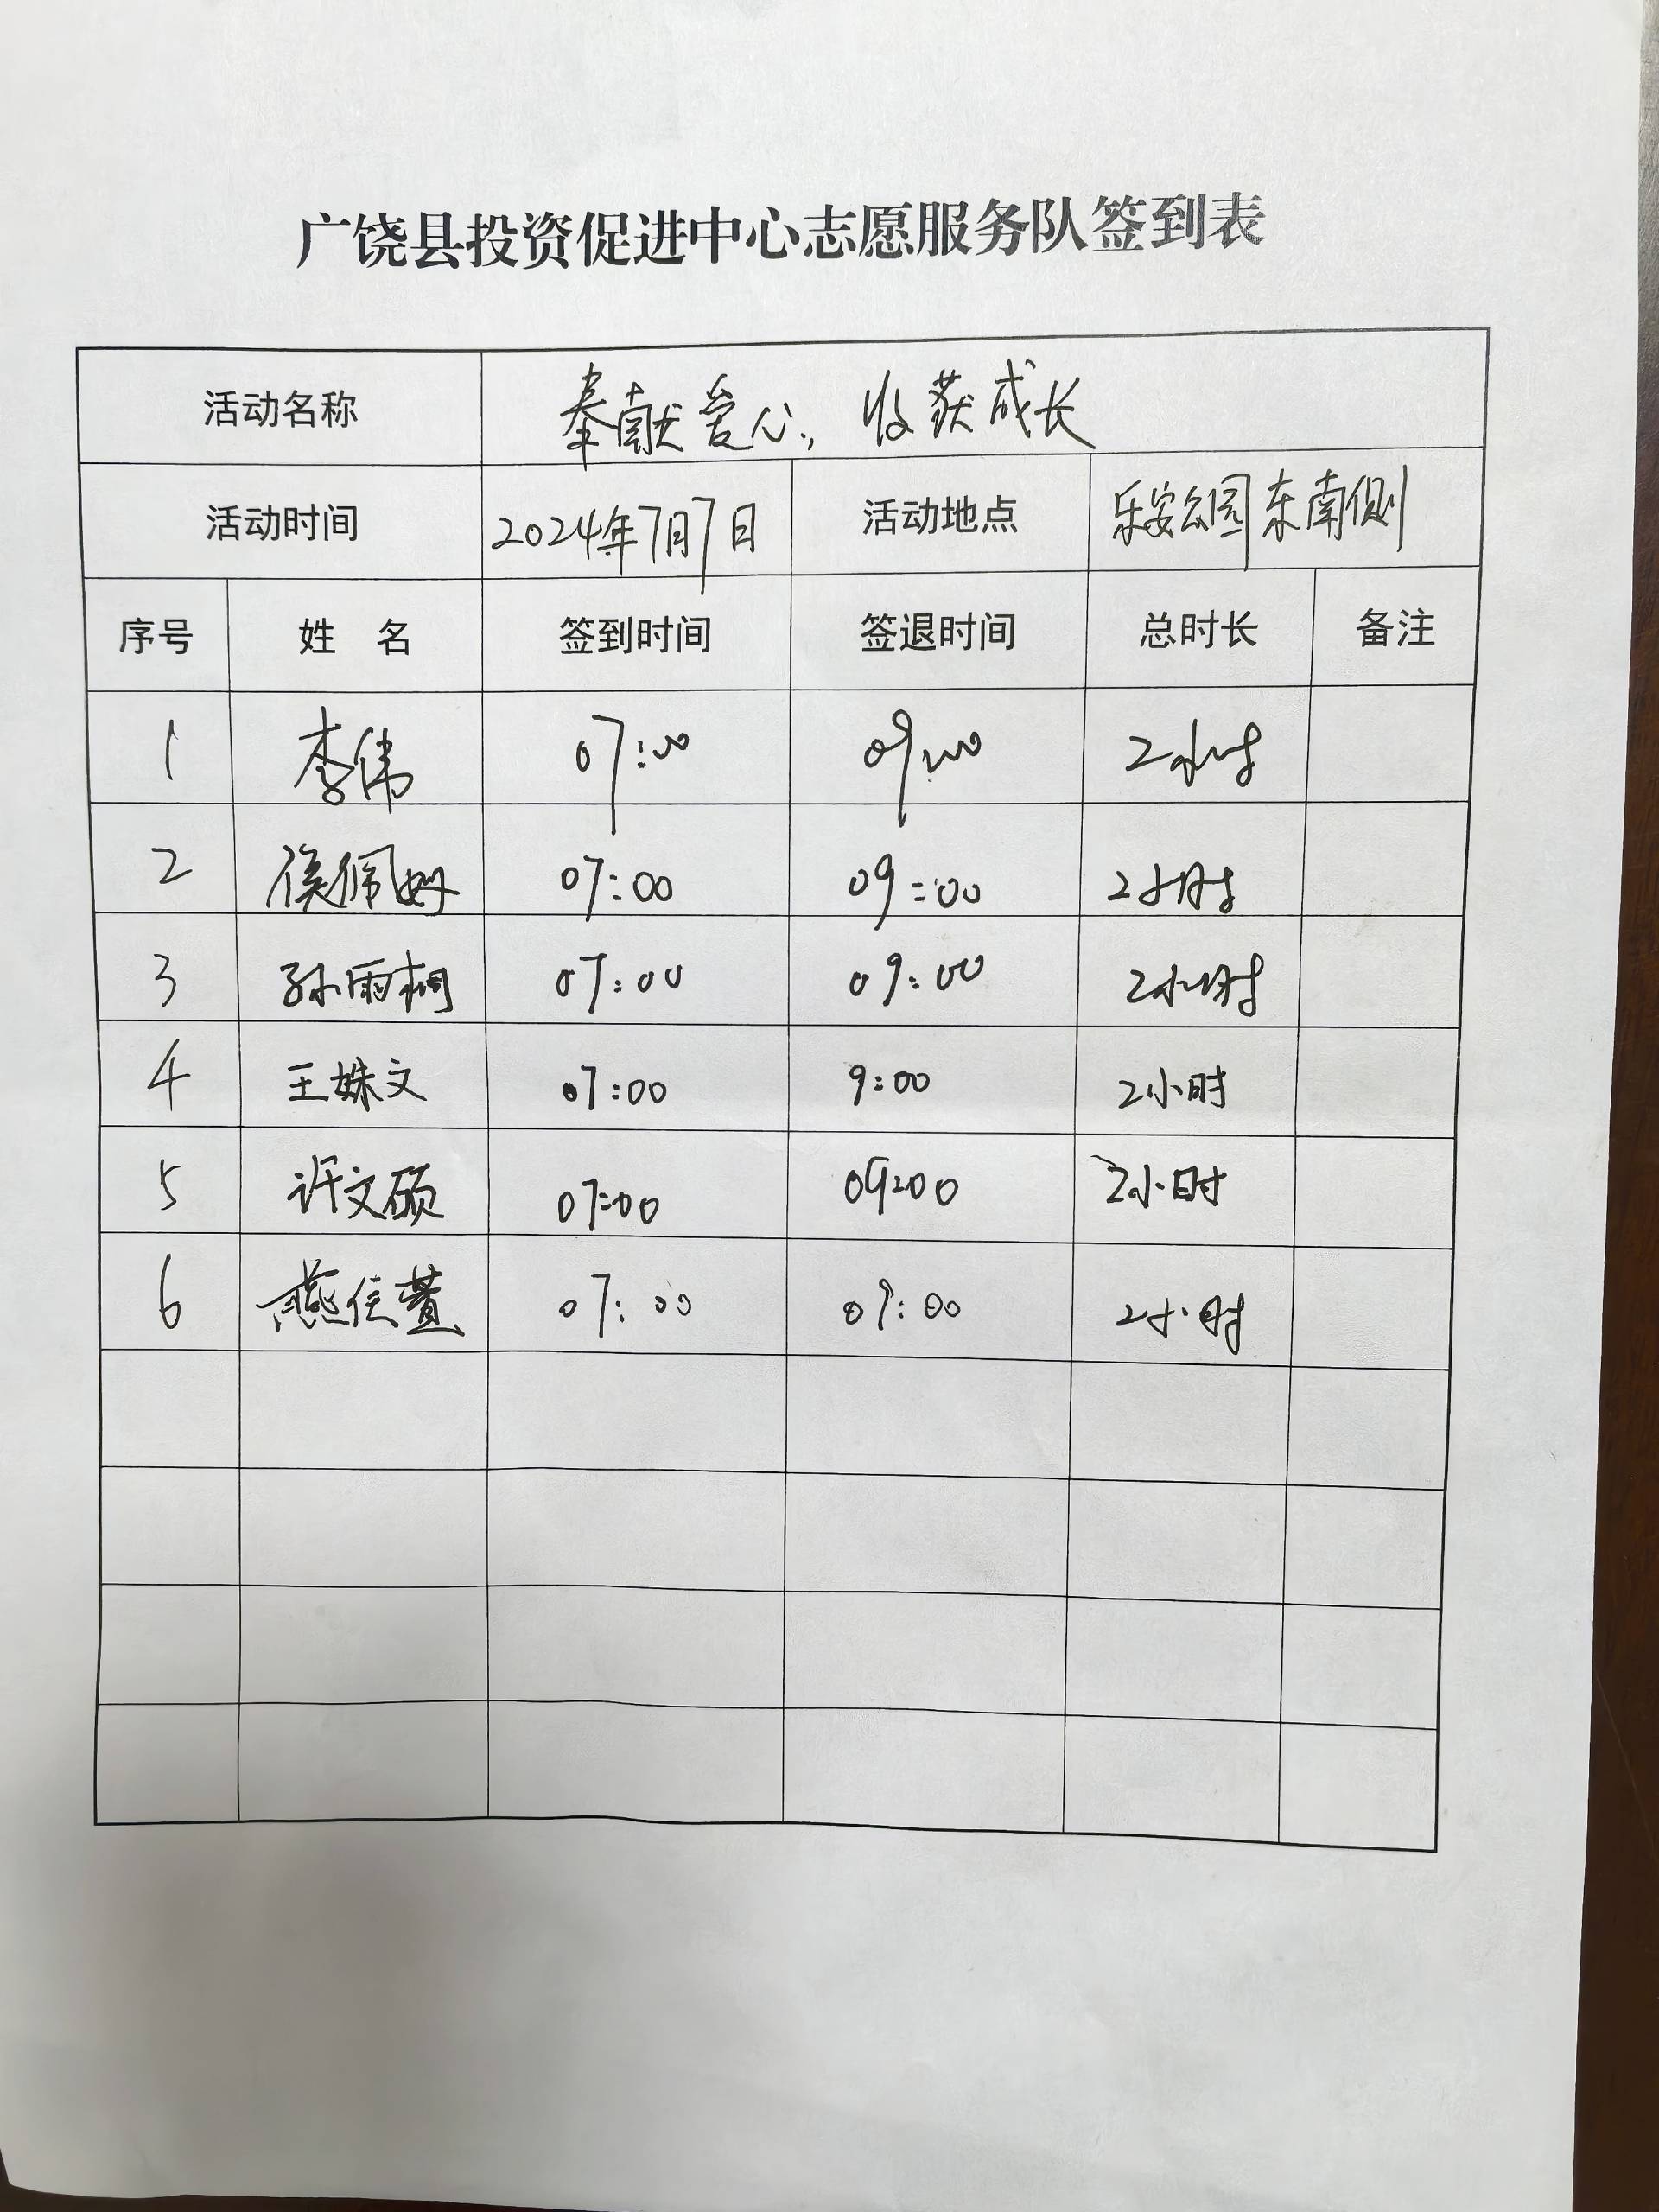 广饶县投资促进中心志愿服务队签到表
活动名称 奉献爱心，收获成长
活动时间 2024年7月7日 活动地点 乐安公园东南侧
序号 姓 名 签到时间 签退时间 总时长 备注
1 李伟 07:00 09:00 2小时
2 侯佩妤 07:00 09:00 2小时
3 孙雨桐 07:00 09:00 2小时
4 王姝文 07:00 9:00 2小时
5 许文硕 07:00 09:00 2小时
6 燕佳萱 07:00 09:00 2小时